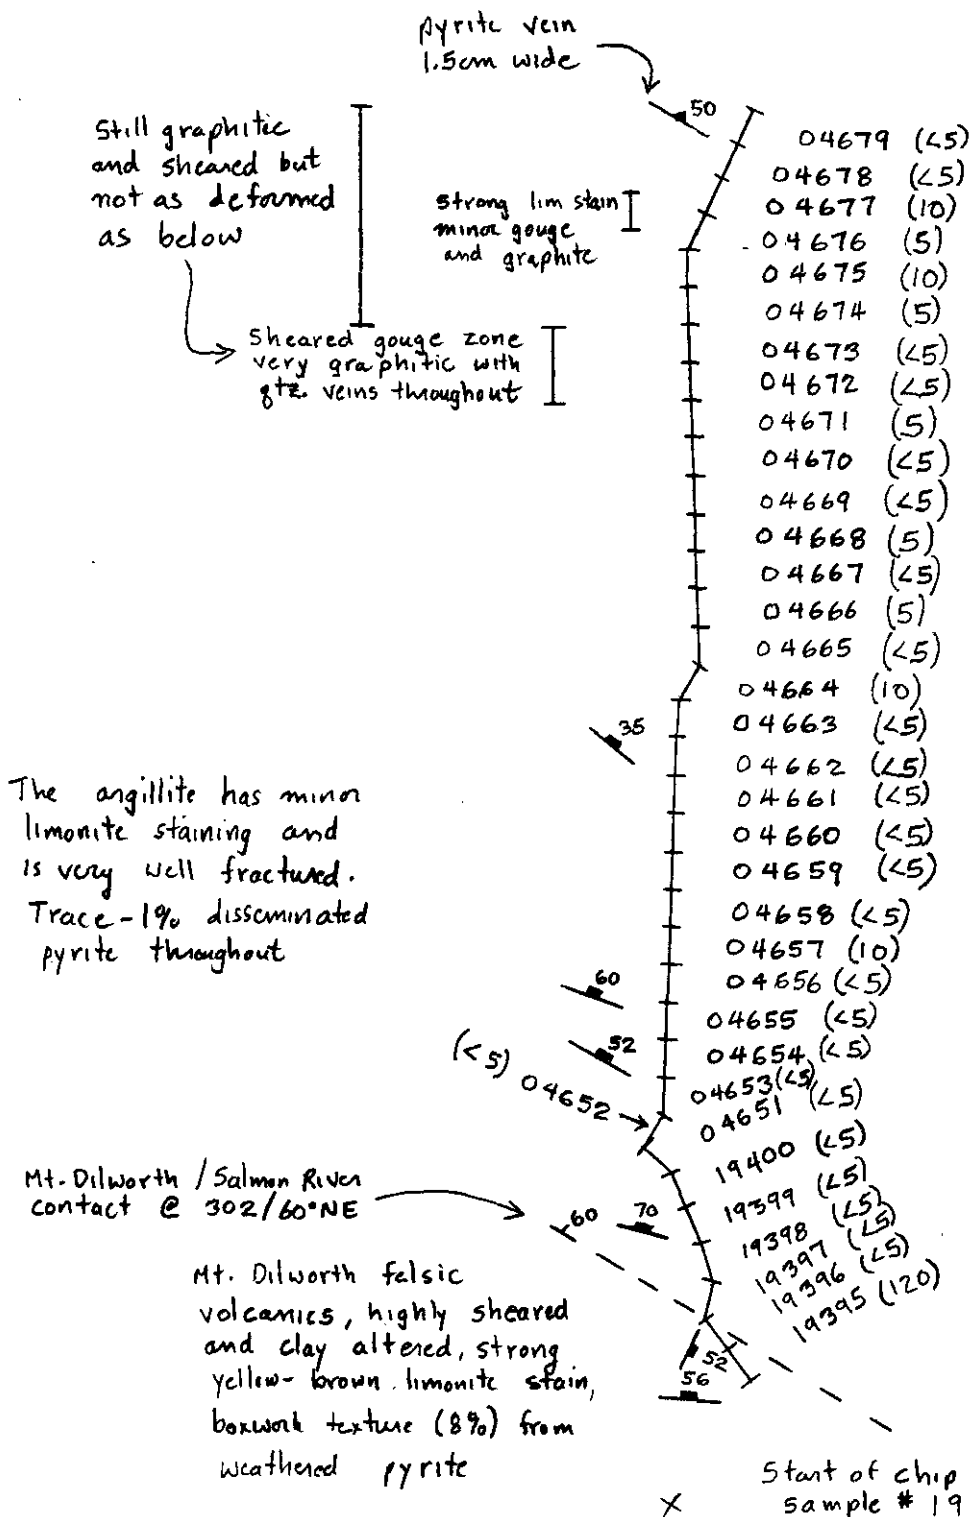 pyrite vein
1.5cm wide
50
Still graphitic
and sheared but
not as deformed
as below
strong lim stain
minor gouge
and graphite
Sheared gouge zone
very graphitic with
qtz. veins throughout
04679 (<5)
04678 (<5)
04677 (10)
04676 (5)
04675 (10)
04674 (5)
04673 (<5)
04672 (<5)
04671 (5)
04670 (<5)
04669 (<5)
04668 (5)
04667 (<5)
04666 (5)
04665 (<5)
04664 (10)
04663 (<5)
04662 (<5)
04661 (<5)
04660 (<5)
04659 (<5)
04658 (<5)
04657 (10)
04656 (<5)
04655 (<5)
04654 (<5)
04653 (<5)
04651 (<5)
19400 (<5)
19399 (<5)
19398 (<5)
19397 (<5)
19396 (<5)
19395 (120)
35
The argillite has minor
limonite staining and
is very well fractured.
Trace-1% disseminated
pyrite throughout
60
52
(<5) 04652
Mt. Dilworth / Salmon River
contact @ 302/60°NE
60
70
Mt. Dilworth felsic
volcanics, highly sheared
and clay altered, strong
yellow-brown limonite stain,
boxwork texture (8%) from
weathered pyrite
52
56
Start of chip
sample # 19